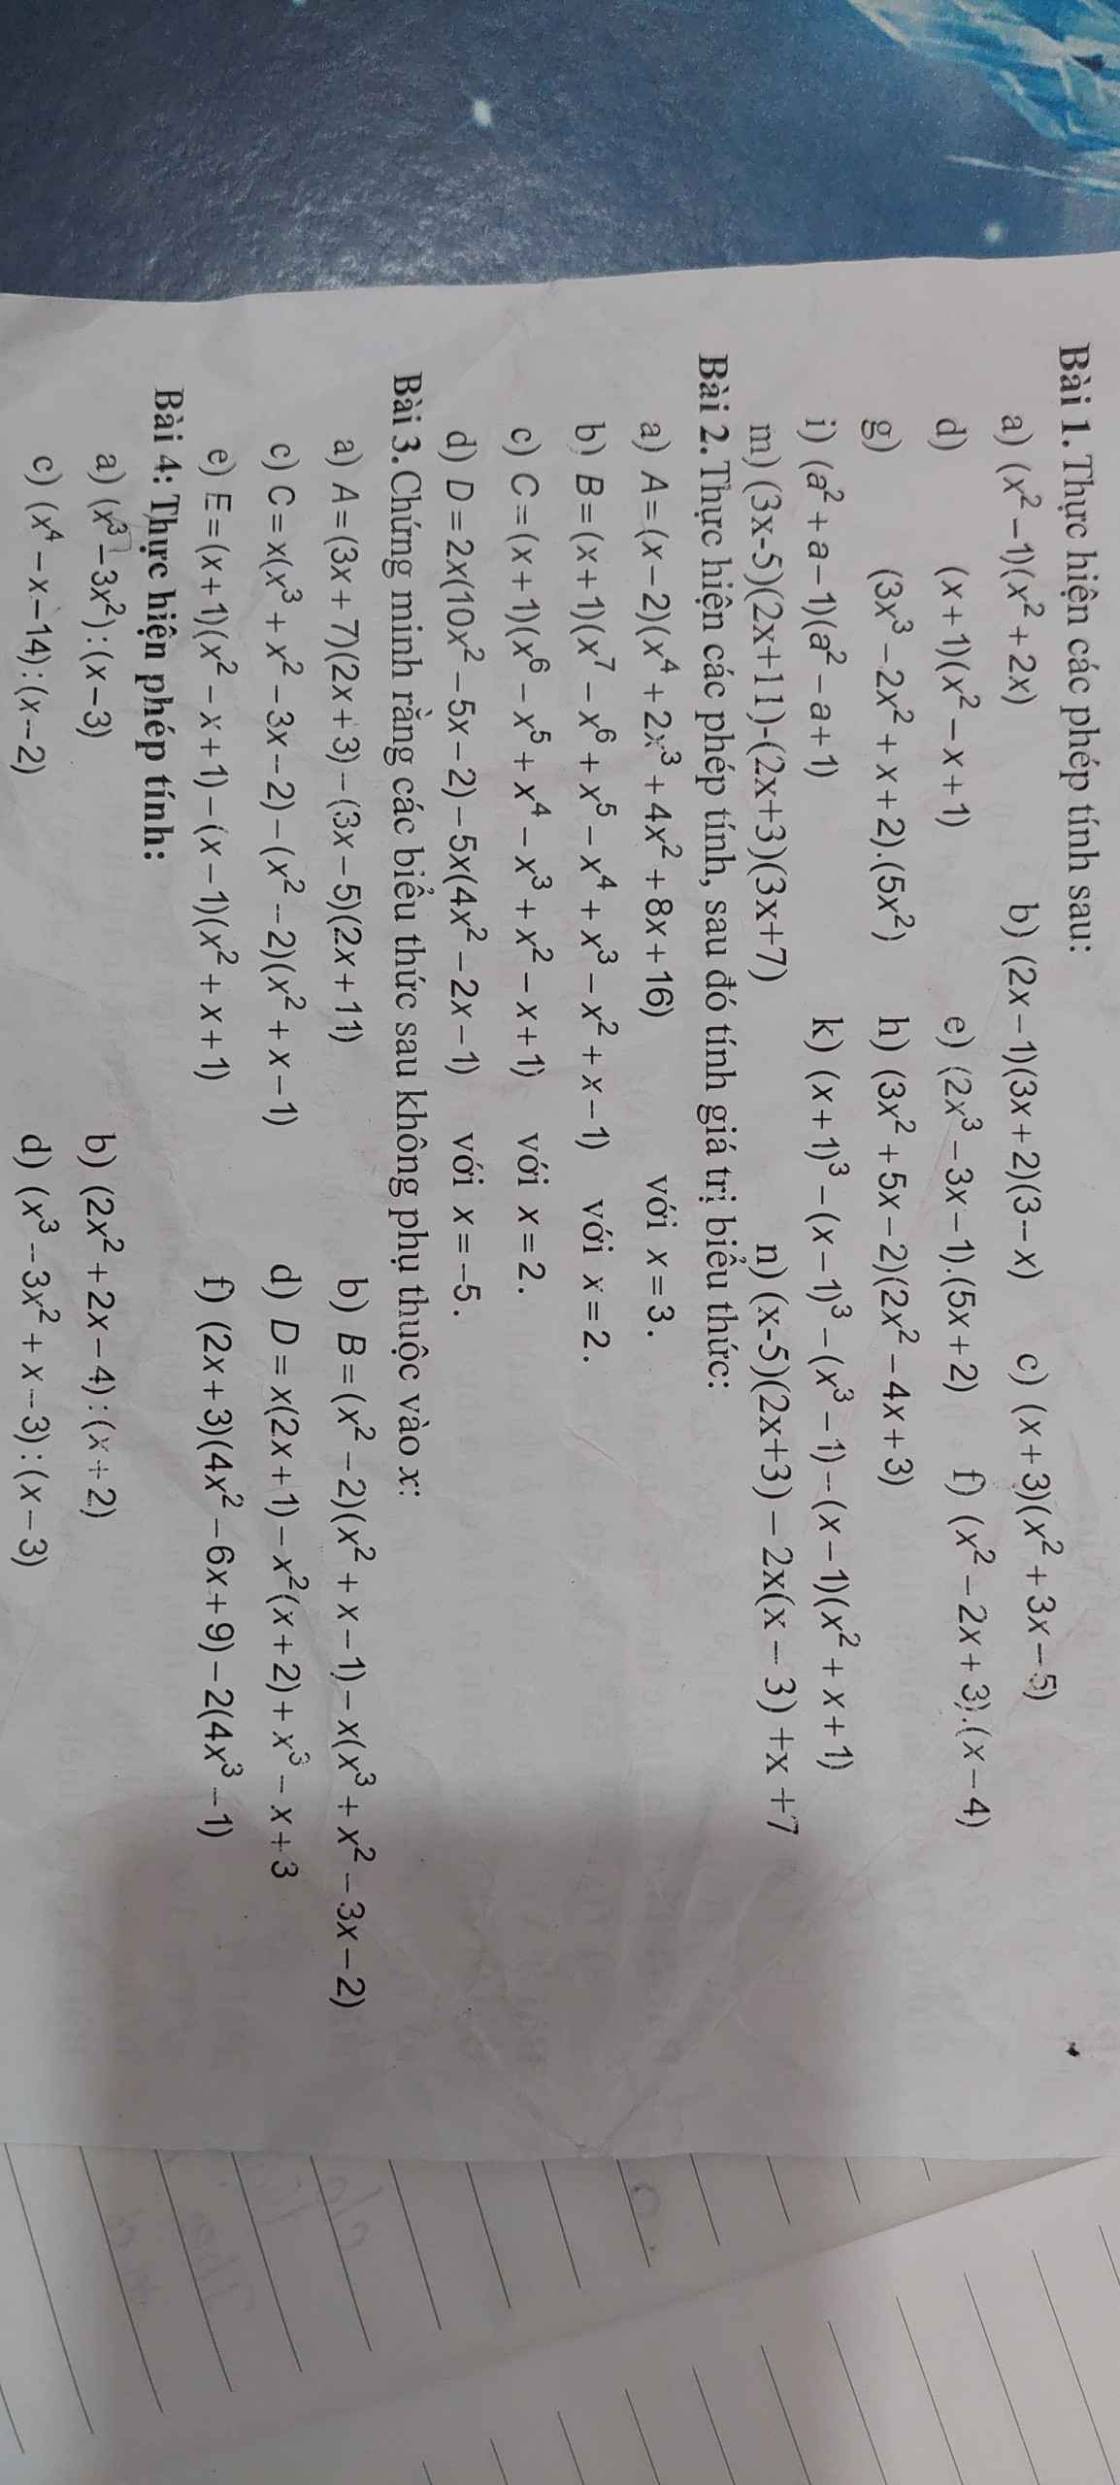 Bài 1. Thực hiện các phép tính sau:
a) (x² – 1)(x² + 2x) b) (2x – 1)(3x + 2)(3 – x) c) (x + 3)(x² + 3x – 5)
d) (x + 1)(x² – x + 1) e) (2x³ – 3x – 1).(5x + 2) f) (x² – 2x + 3).(x – 4)
g) (3x³ – 2x² + x + 2).(5x²) h) (3x² + 5x – 2)(2x² – 4x + 3)
i) (a² + a – 1)(a² – a + 1) k) (x + 1)³ – (x – 1)³ – (x³ – 1) – (x – 1)(x² + x + 1)
m) (3x-5)(2x+11)-(2x+3)(3x+7) n) (x-5)(2x+3) – 2x(x – 3) +x +7
Bài 2. Thực hiện các phép tính, sau đó tính giá trị biểu thức:
a) A = (x – 2)(x⁴ + 2x³ + 4x² + 8x + 16) với x = 3.
b) B = (x + 1)(x⁷ – x⁶ + x⁵ – x⁴ + x³ – x² + x – 1) với x = 2.
c) C = (x + 1)(x⁶ – x⁵ + x⁴ – x³ + x² – x + 1) với x = 2.
d) D = 2x(10x² – 5x – 2) – 5x(4x² – 2x – 1) với x = –5.
Bài 3. Chứng minh rằng các biểu thức sau không phụ thuộc vào x:
a) A = (3x + 7)(2x + 3) – (3x – 5)(2x + 11) b) B = (x² – 2)(x² + x – 1) – x(x³ + x² – 3x – 2)
c) C = x(x³ + x² – 3x – 2) – (x² – 2)(x² + x – 1) d) D = x(2x + 1) – x²(x + 2) + x³ – x + 3
e) E = (x + 1)(x² – x + 1) – (x – 1)(x² + x + 1) f) (2x + 3)(4x² – 6x + 9) – 2(4x³ – 1)
Bài 4: Thực hiện phép tính:
a) (x³ – 3x²) : (x – 3) b) (2x² + 2x – 4) : (x + 2)
c) (x⁴ – x – 14) : (x – 2) d) (x³ – 3x² + x – 3) : (x – 3)